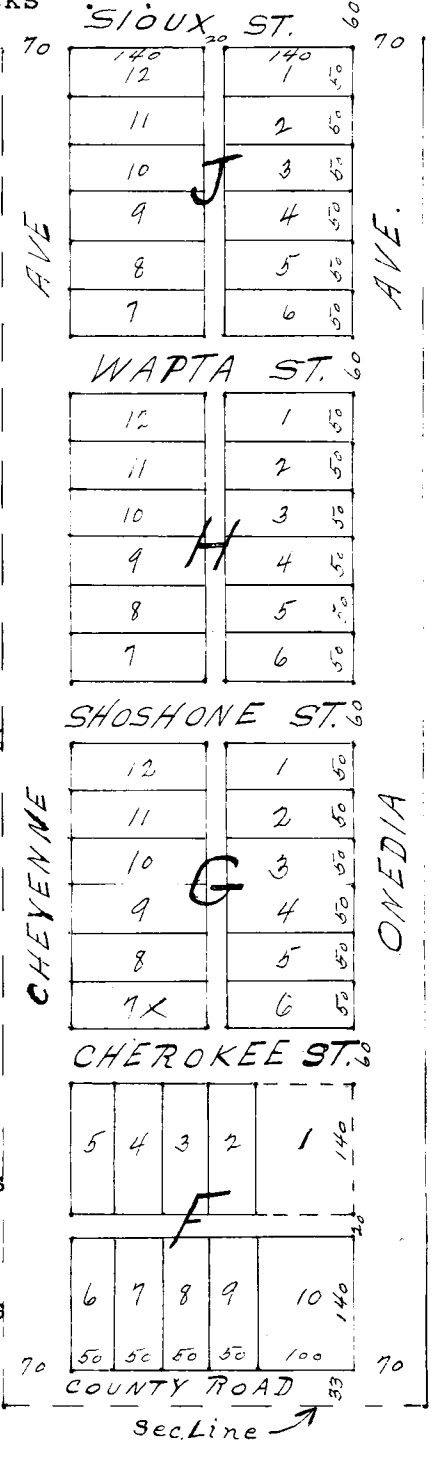 SIOUX ST. 60
70 20 70
140 140
12 1 50
11 2 50
10 3 50
J
9 4 50
8 5 50
7 6 50
AVE AVE.
WAPTA ST. 60
12 1 50
11 2 50
10 3 50
H
9 4 50
8 5 50
7 6 50
SHOSHONE ST. 60
12 1 50
11 2 50
10 3 50
G
9 4 50
8 5 50
7X 6 50
CHEYENNE ONEDIA
CHEROKEE ST. 60
5 4 3 2 1 140
F 20
6 7 8 9 10 140
50 50 50 50 100
70 70
COUNTY ROAD 33
Sec.Line